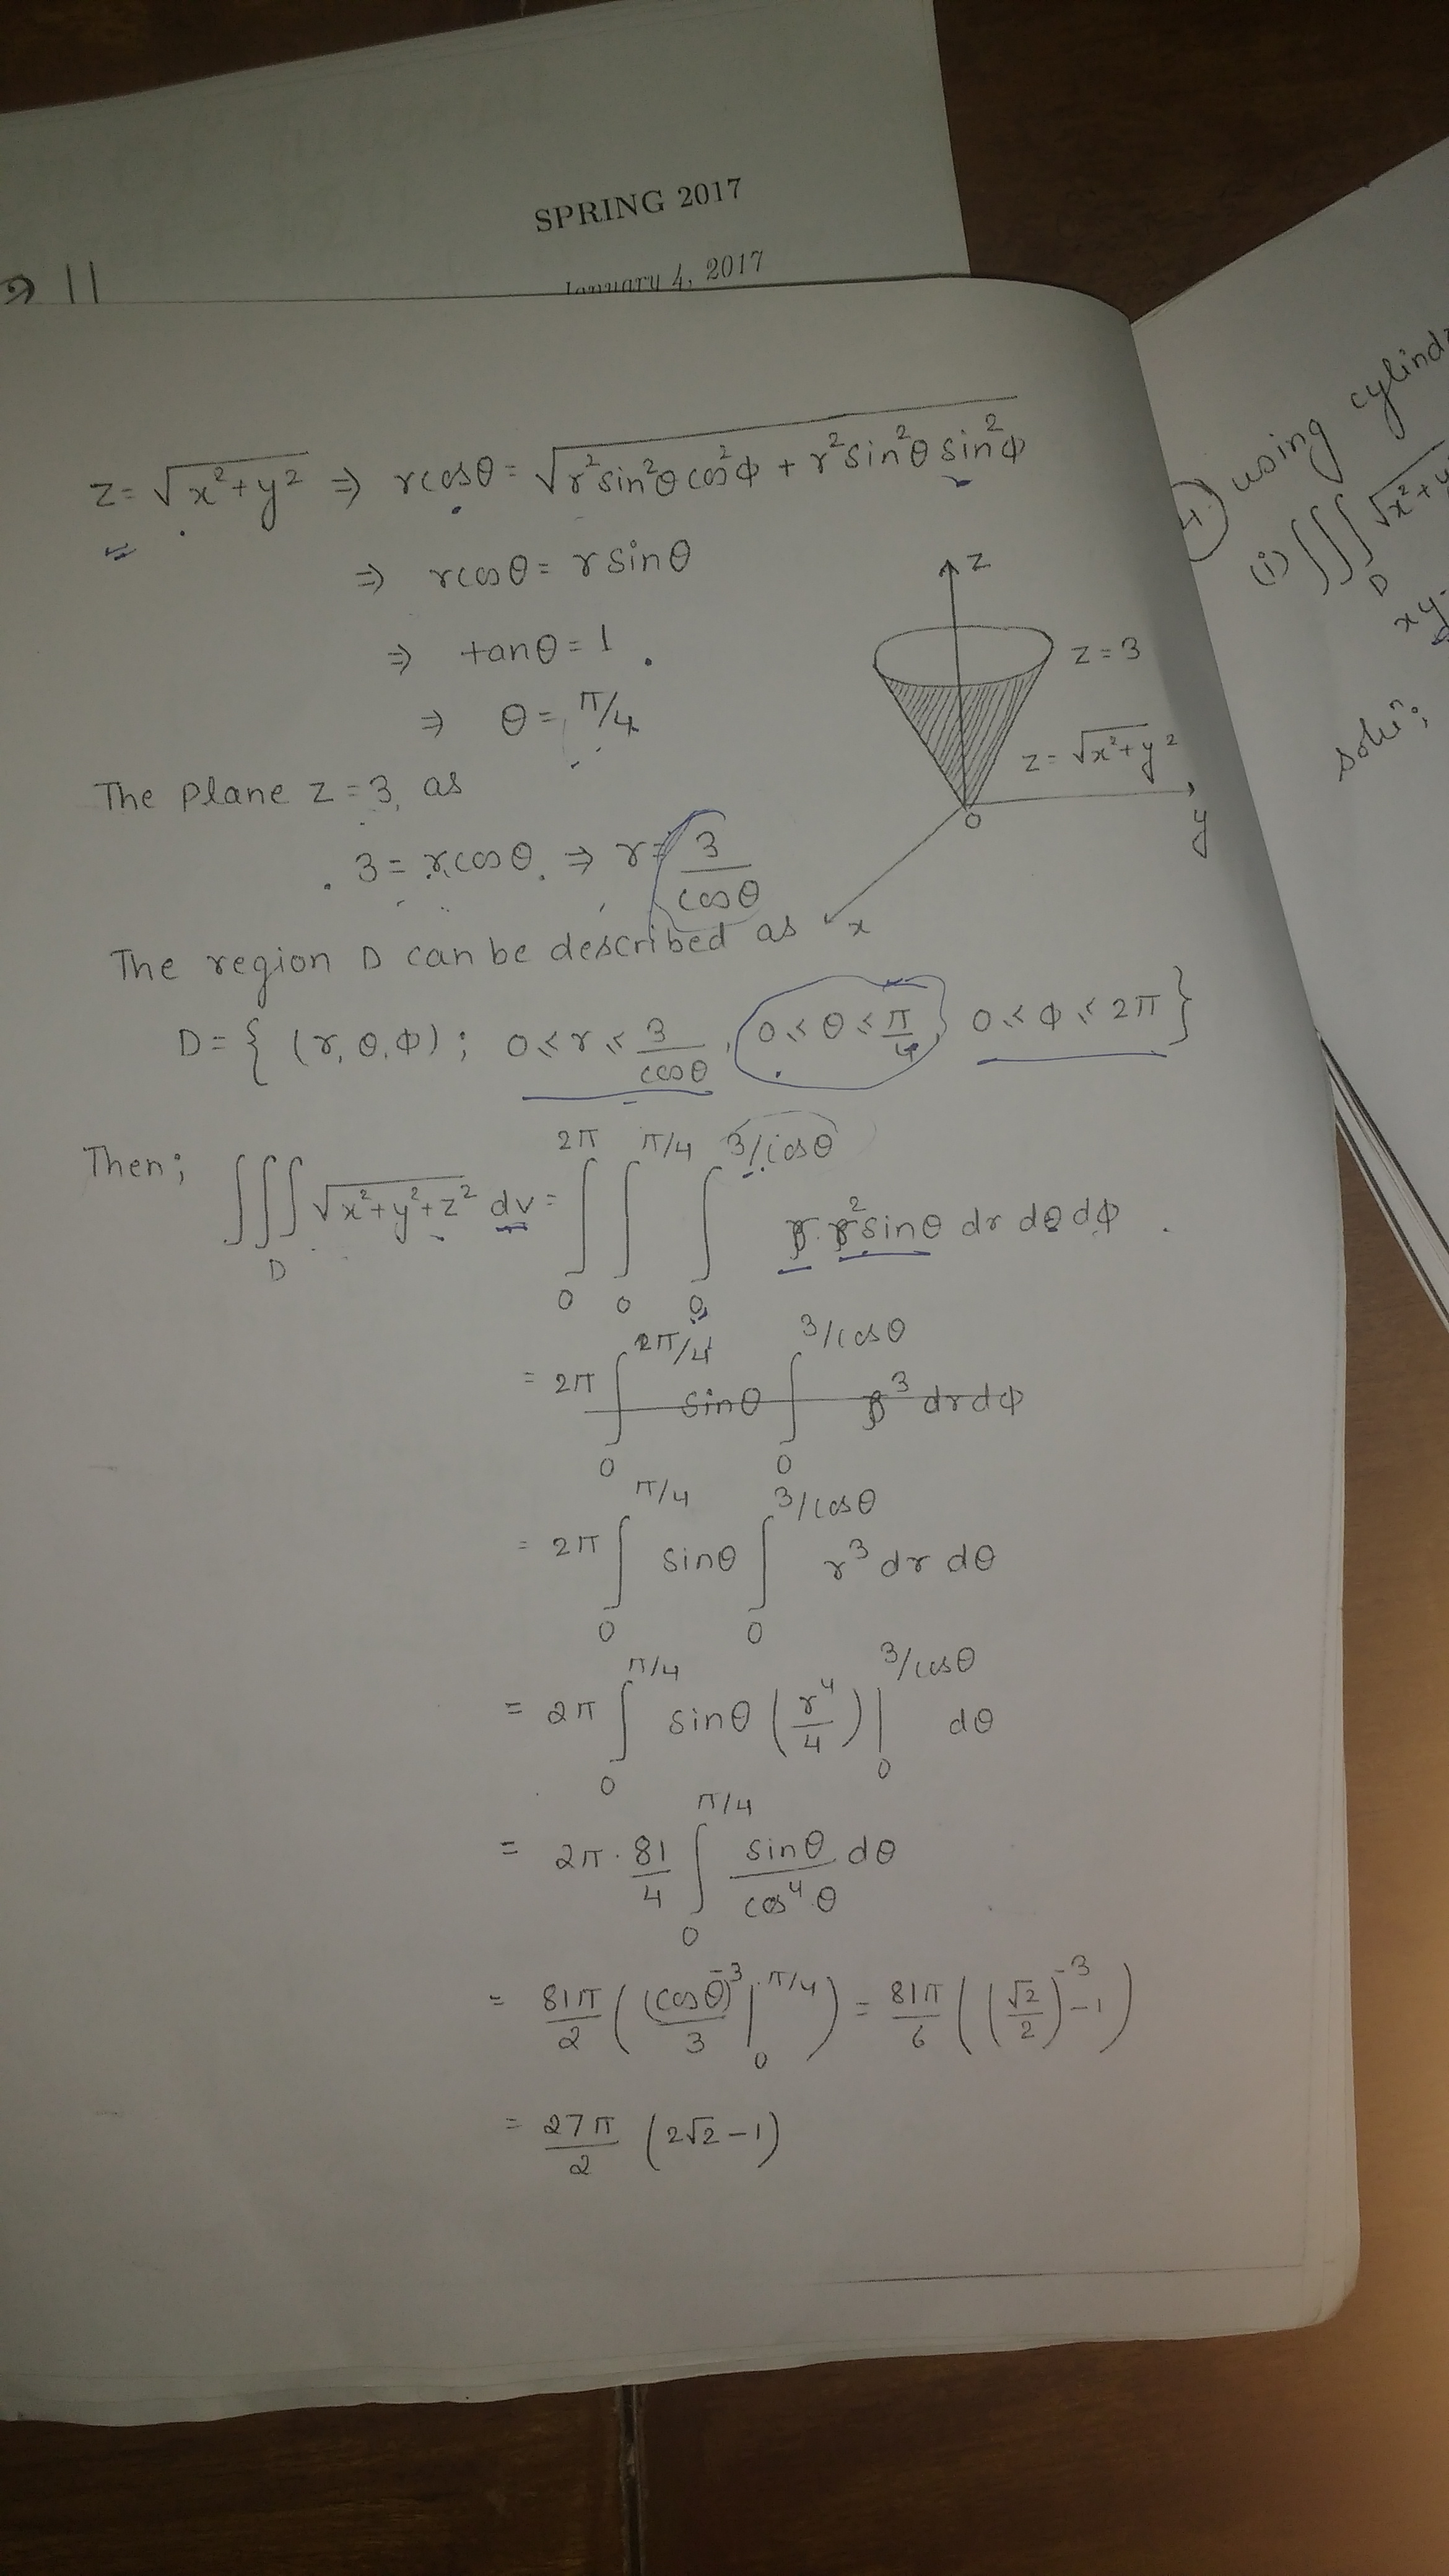 SPRING 2017
January 4, 2017
11
z = √(x²+y²) ⇒ r cosθ = √(r² sin²θ cos²φ + r² sin²θ sin²φ)
⇒ r cosθ = r sinθ
⇒ tanθ = 1
⇒ θ = π/4
z
z = 3
z = √(x²+y²)
O
y
x
The plane z = 3, as
3 = r cosθ ⇒ r = 3/cosθ
The region D can be described as
D = { (r, θ, φ) ; 0 ≤ r ≤ 3/cosθ , 0 ≤ θ ≤ π/4 , 0 ≤ φ ≤ 2π }
Then; ∭_D √(x²+y²+z²) dv = ∫_0^{2π} ∫_0^{π/4} ∫_0^{3/cosθ} r · r² sinθ dr dθ dφ
= 2π ∫_0^{2π/4} sinθ ∫_0^{3/cosθ} r³ dr dφ
= 2π ∫_0^{π/4} sinθ ∫_0^{3/cosθ} r³ dr dθ
= 2π ∫_0^{π/4} sinθ (r⁴/4) |_0^{3/cosθ} dθ
= 2π · 81/4 ∫_0^{π/4} sinθ/cos⁴θ dθ
= 81π/2 ( (cosθ)⁻³/3 |_0^{π/4} ) = 81π/6 ( (√2/2)⁻³ - 1 )
= 27π/2 (2√2 - 1)
using
(i) ∭_D √x²+y
xy-
soln: